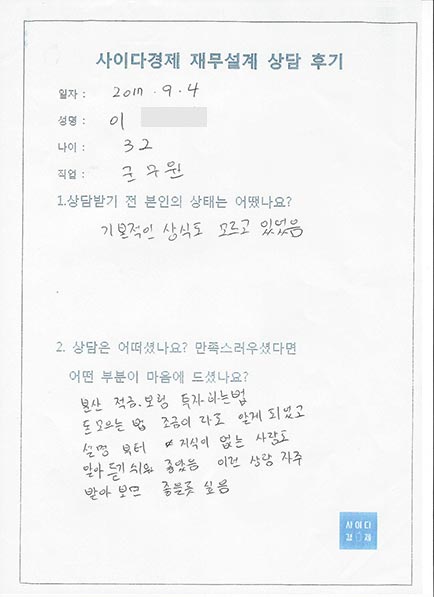 사이다경제 재무설계 상담 후기
일자 : 2017 . 9 . 4
성명 : 이
나이 : 32
직업 : 군무원
1.상담받기 전 본인의 상태는 어땠나요?
기본적인 상식도 모르고 있었음
2. 상담은 어떠셨나요? 만족스러우셨다면
어떤 부분이 마음에 드셨나요?
분산 적금.보험 투자하는법
돈모으는 법 조금이 라도 알게 되었고
설명 부터 지식이 없는 사람도
알아듣기 쉬워 좋았음 이런 상담 자주
받아 보면 좋을듯 싶음
사이다
경제